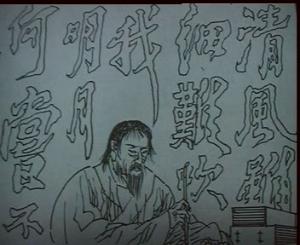 清風雖
細難吹
我
明月
何嘗不